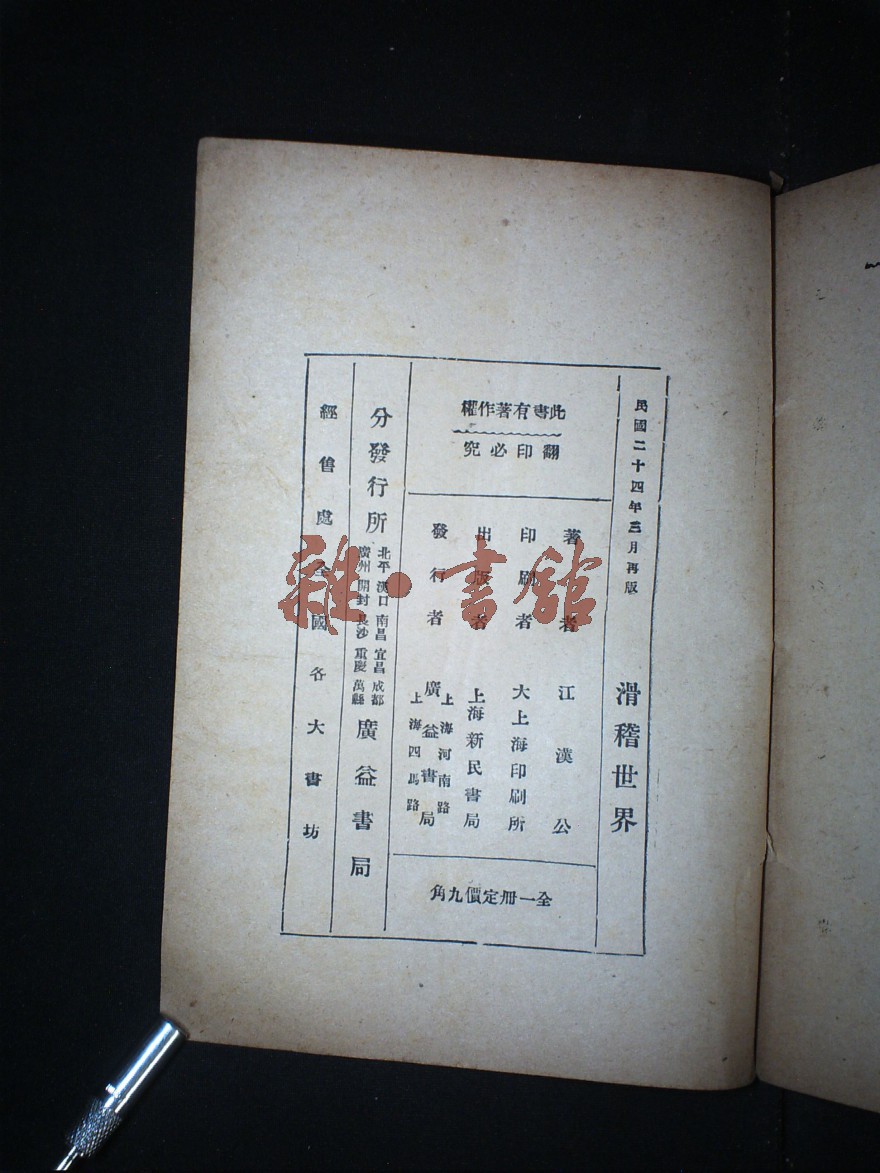 民國二十四年三月再版
滑稽世界
此書有著作權
翻印必究
著者 江漢公
印刷者 大上海印刷所
出版者 上海新民書局
發行者 廣益書局
上海河南路
上海四馬路
全一冊定價九角
分發行所
北平 漢口 南昌 宜昌 成都
廣州 開封 長沙 重慶 萬縣
廣益書局
經售處 全國各大書坊
雜·書館